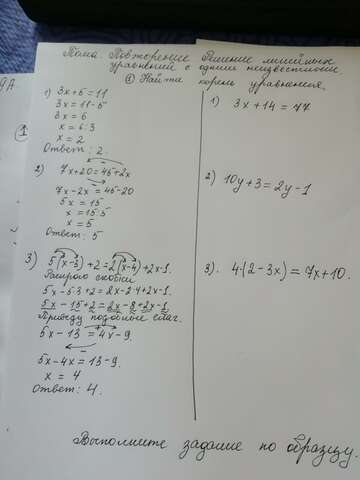 Тема. Повторение Решение линейных
уравнений с одним неизвестным.
① Найти корень уравнения.
9А
①
1) 3x+5=11
3x = 11-5
3x = 6
x = 6:3
x = 2
Ответ: 2.
2) 7x+20=45+2x
7x-2x = 45-20
5x = 15
x = 15:5
x = 5
Ответ: 5
3) 5(x-3)+2=2(x-4)+2x-1.
Раскрою скобки
5x-5·3+2=2x-2·4+2x-1.
5x-15+2=2x-8+2x-1
Приведу подобные слаг.
5x-13=4x-9.
5x-4x = 13-9.
x = 4
Ответ: 4.
1) 3x+14=77
2) 10y+3=2y-1
3). 4·(2-3x)=7x+10.
Выполните задание по образцу.